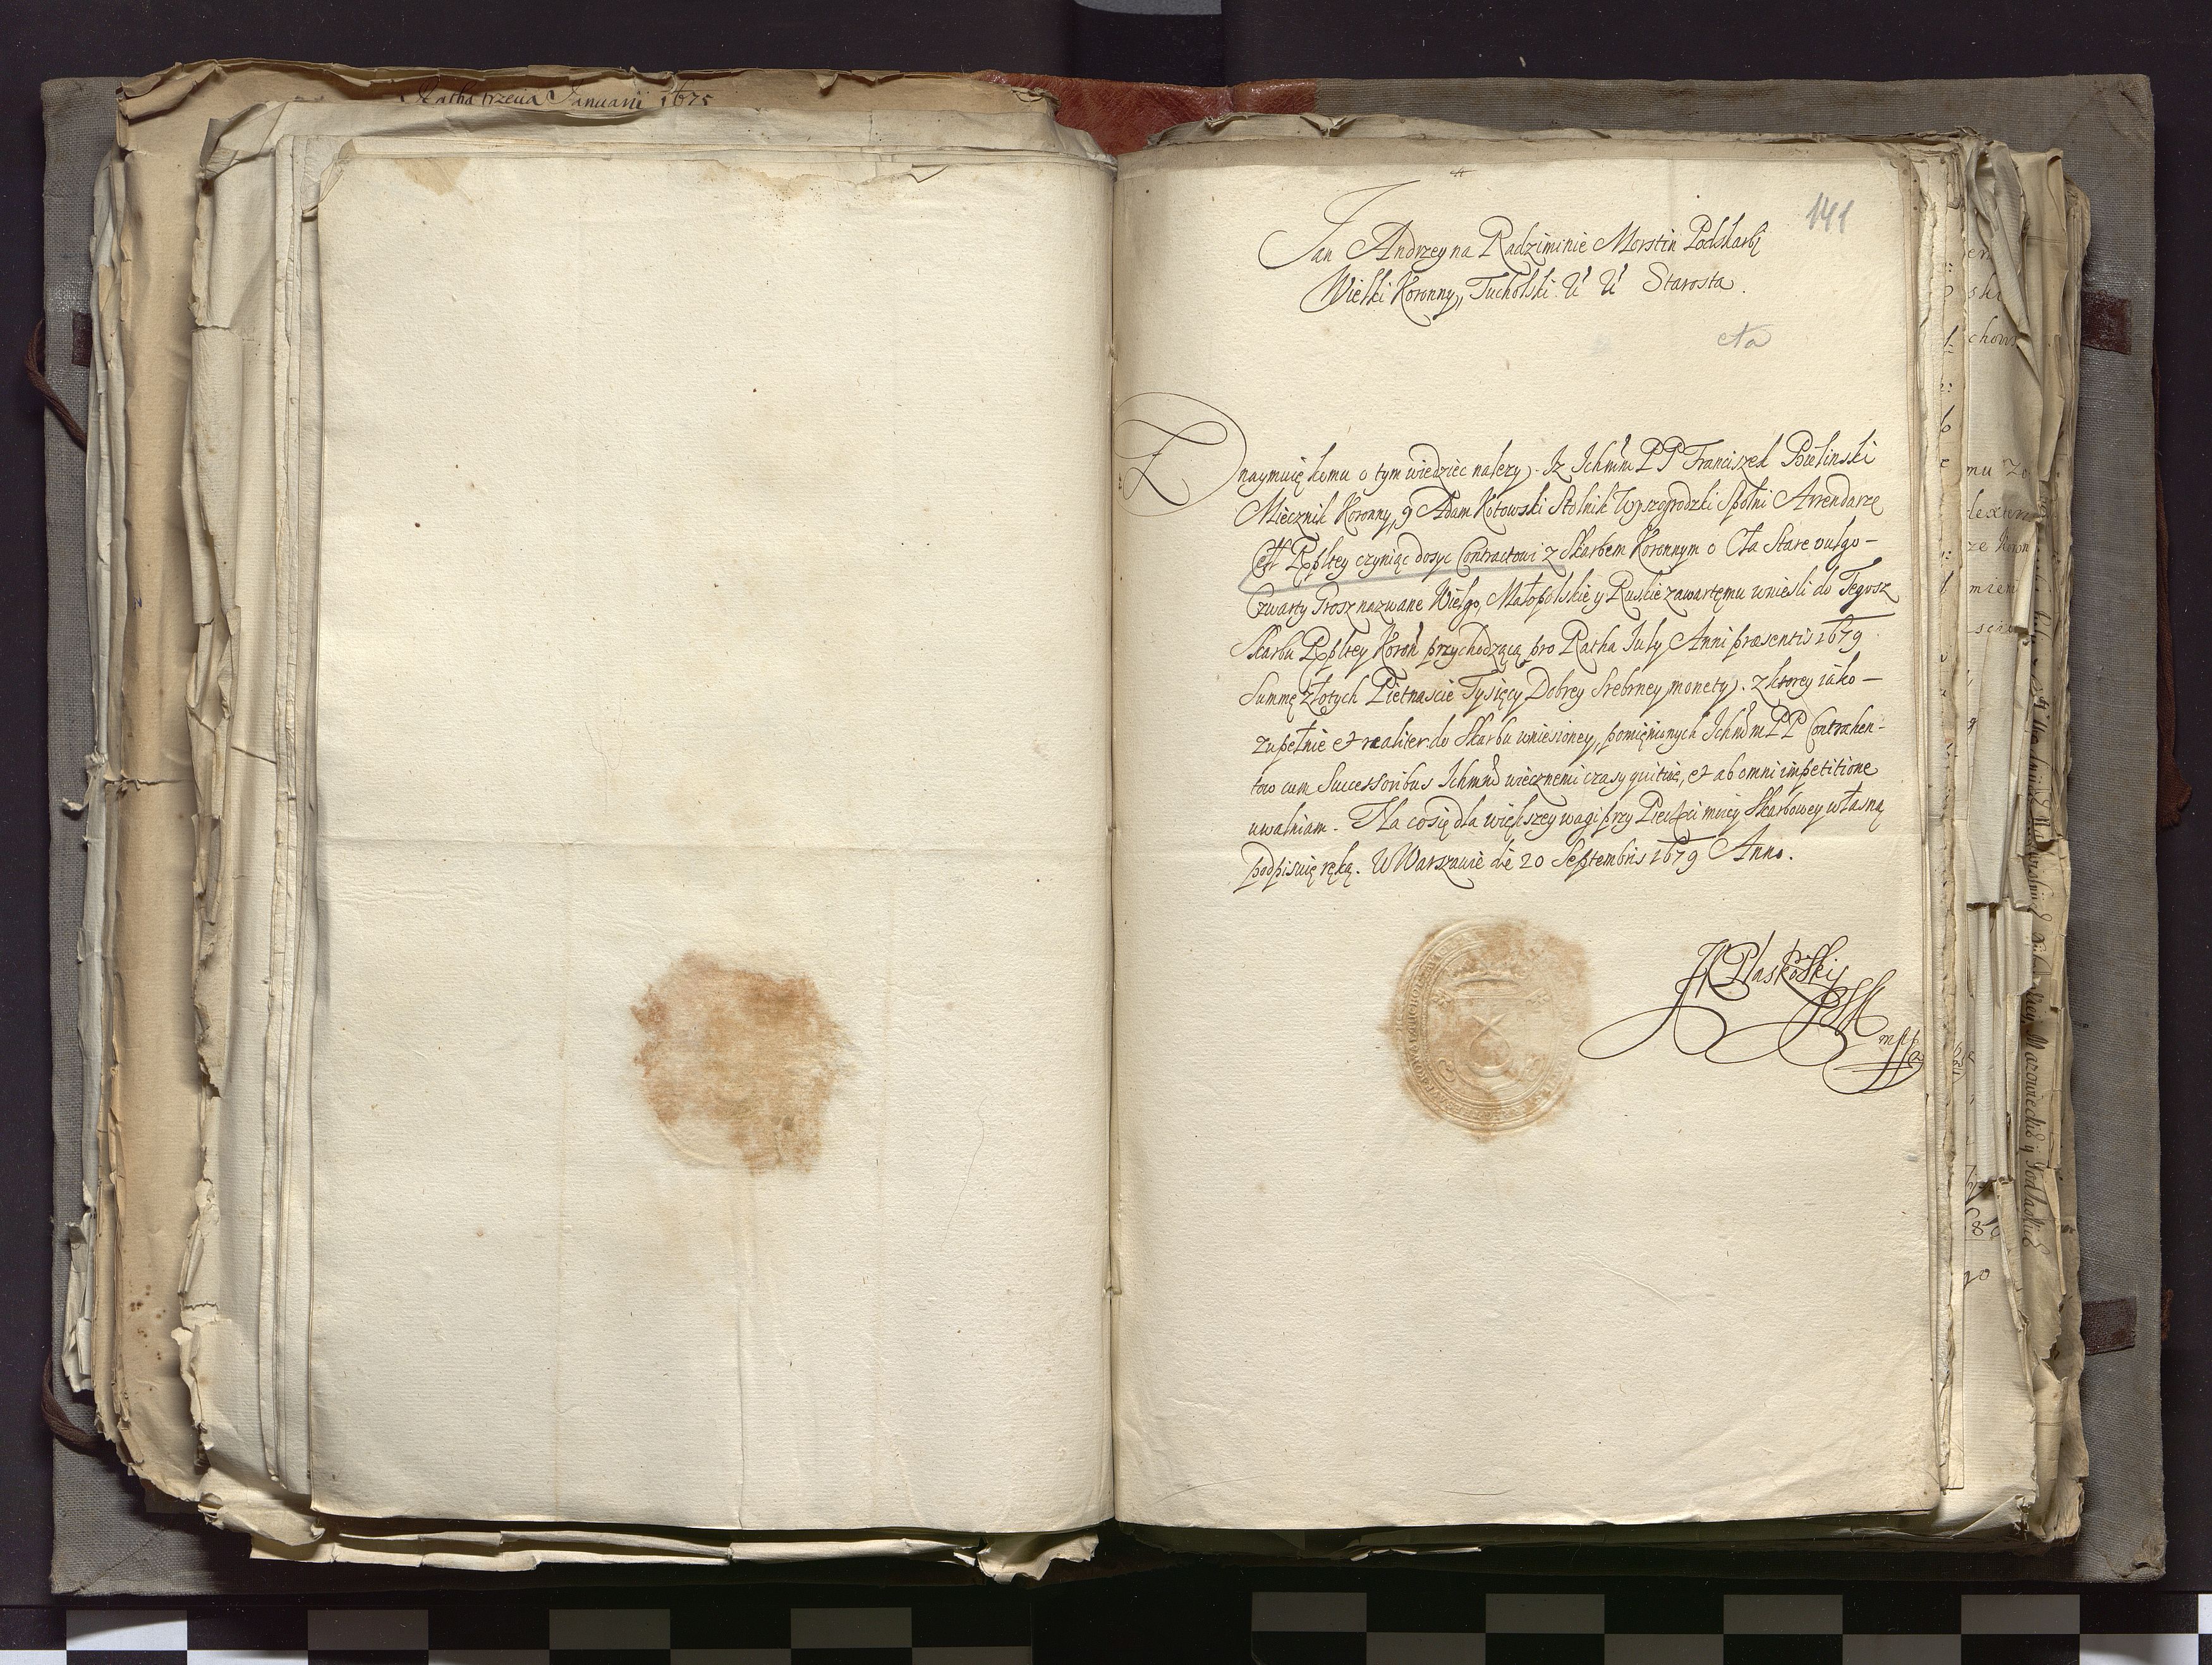 Ratha trzecia Januarii 1675
141
Jan Andrzey na Radziminie Morstin Podskarbi
Wielki Koronny, Tucholski & & Starosta.
cła
Znaymuię komu o tym wiedziec nalezy. Iz Ichmm PP Franciszek Bielinski
Miecznik Koronny, y Adam Kotowski Stolnik Wyszogrodzki Spolni Arrendarze
Ceł Rzpltey czyniąc dosyc Contractowi z Skarbem Koronnym o Cła Stare vulgo –
Czwarty Grosz nazwane Wielgo, Małopolskie y Ruskie zawartemu wniesli do Tegosz
Skarbu Rzpltey Koron przychodzącą pro Ratha July Anni præsentis 1679
Summę złotych Pietnascie Tysięcy Dobrey Srebrney monety. z ktorey iako –
zupełnie et realiter do Skarbu wniesioney, pomięnionych Ichmm PP Contrahen-
tow cum Successoribus Ichmm wiecznemi czasy quituię, et ab omni impetitione
uwalniam. Na co się dla większey wagi przy Pieczęci moiey Skarbowey własną
podpisuię ręką. W Warszawie die 20 Septembris 1679 Anno.
mpp